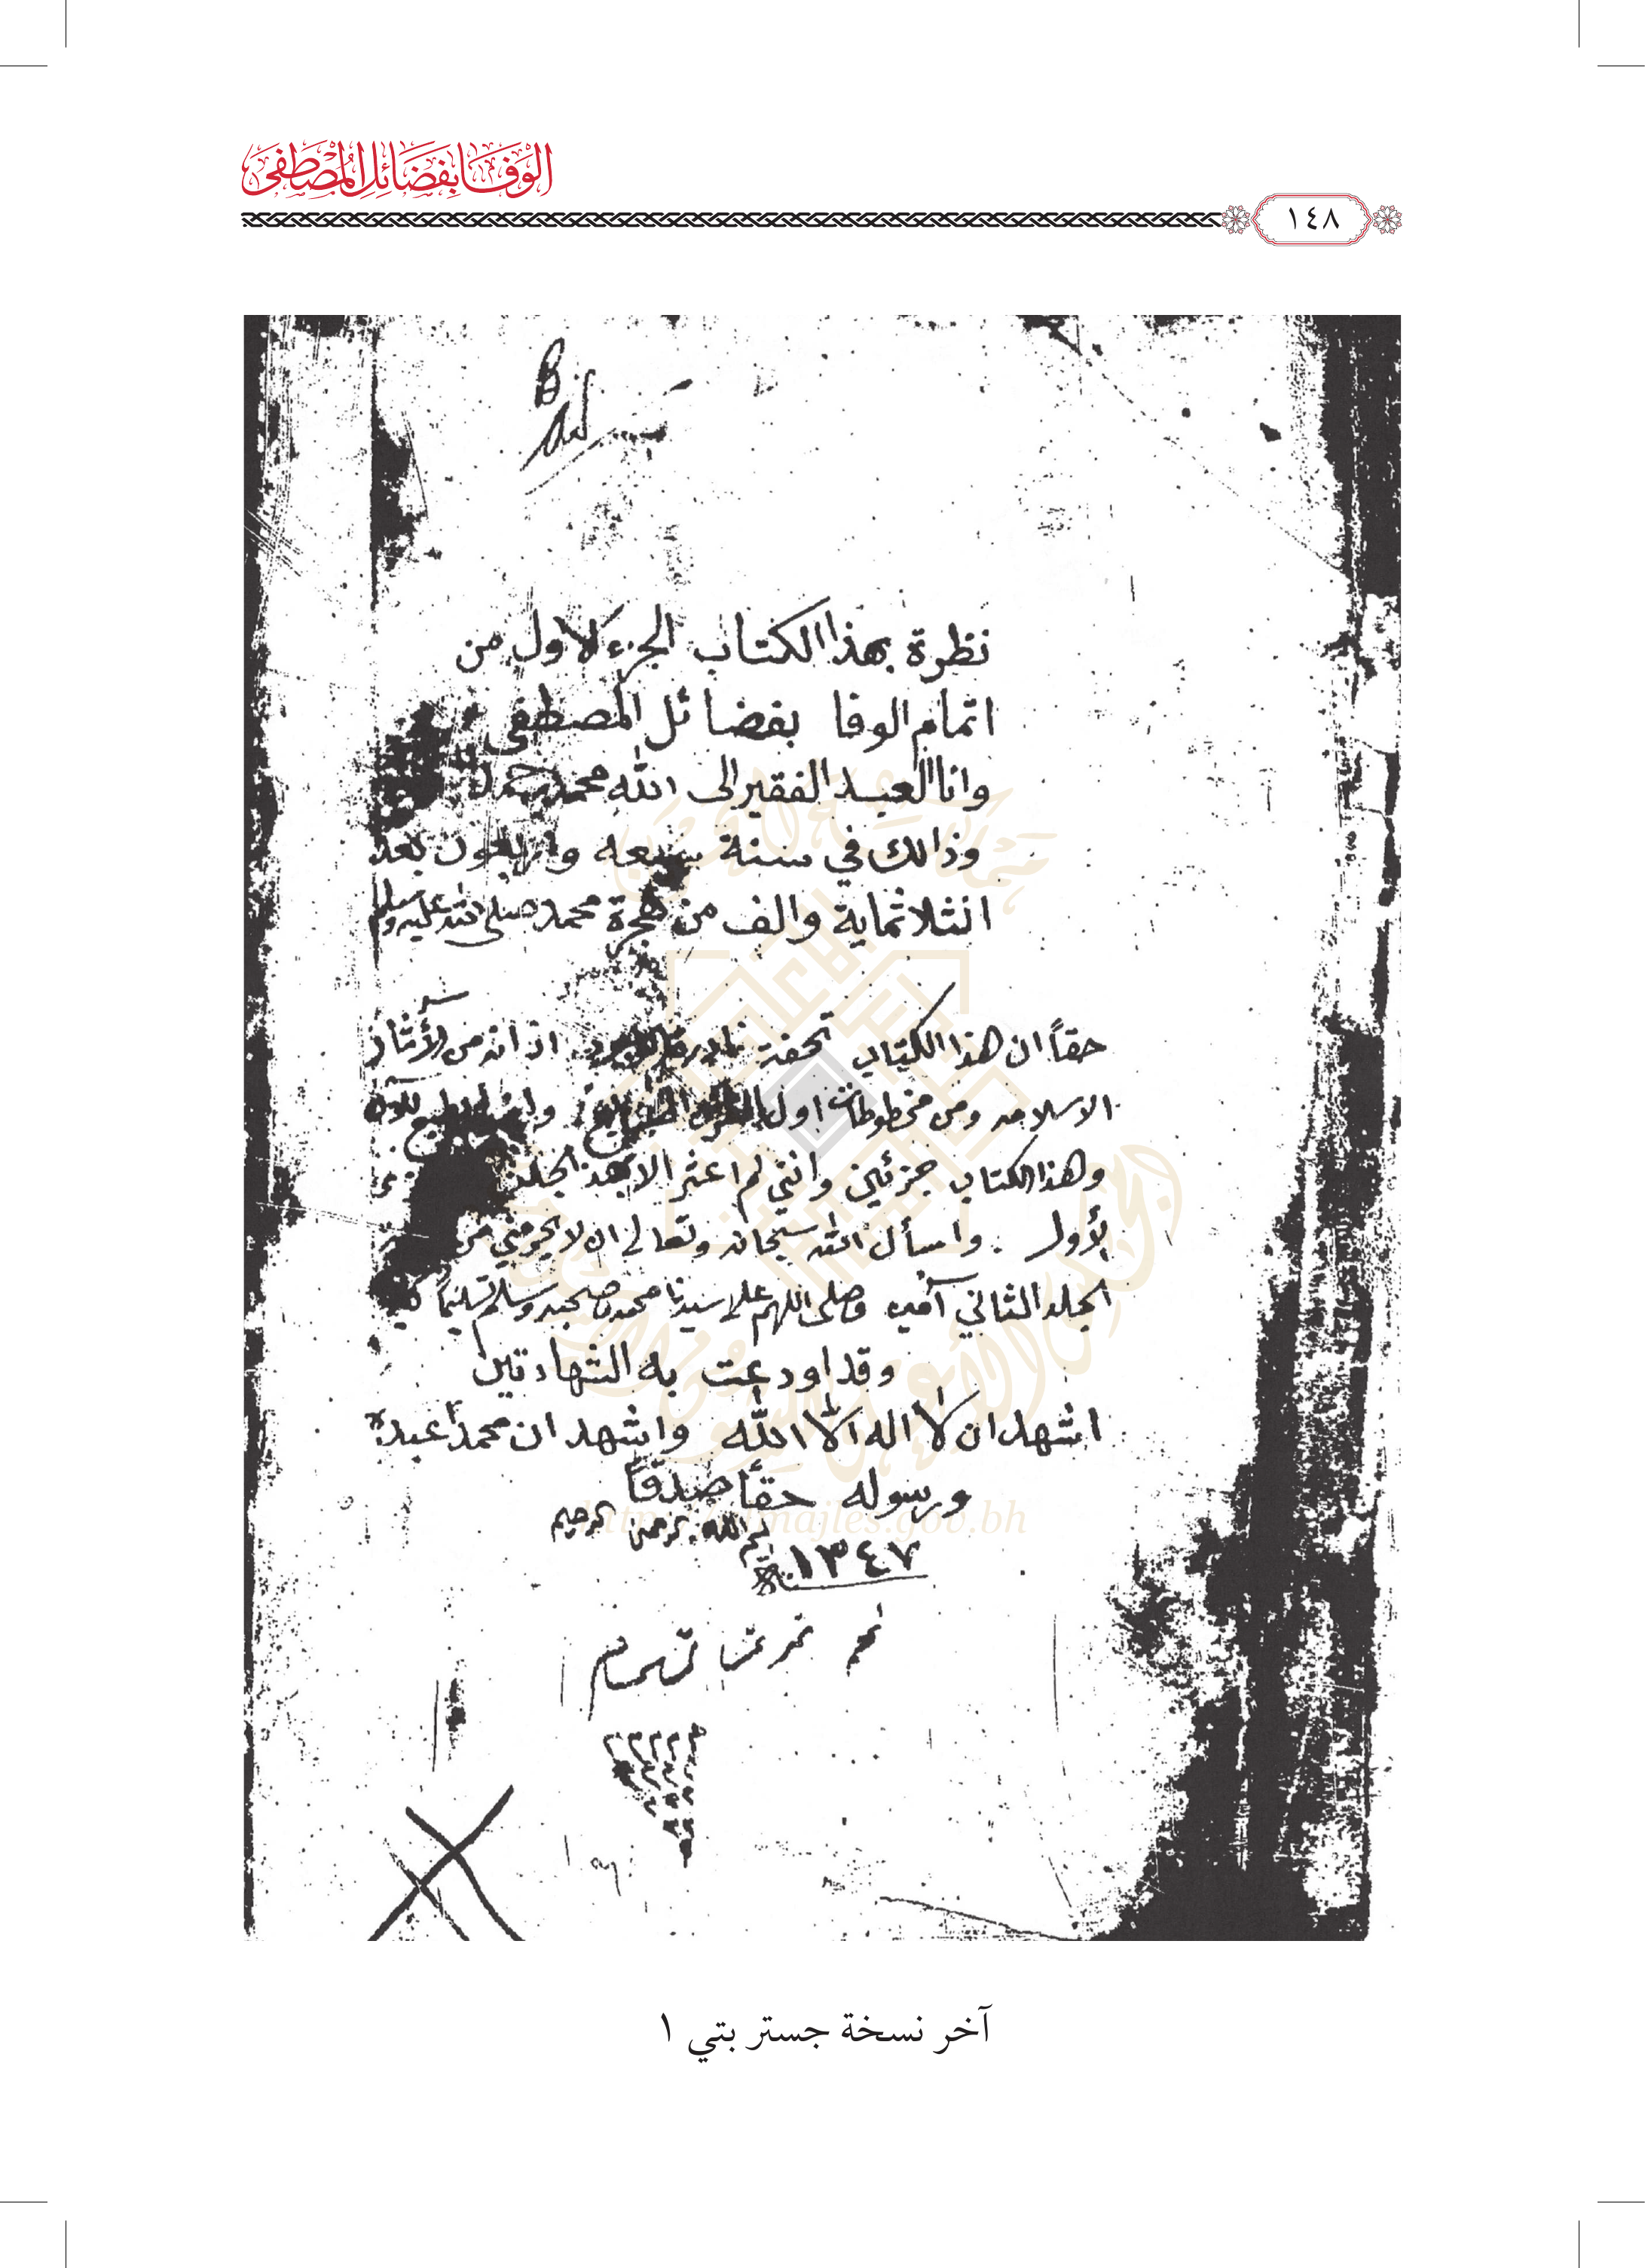 الوَفَا بِفَضَائِلِ المُصْطَفَى
١٤٨
نظرة بهذا الكتاب الجزء الاول من
اتمام الوفا بفضائل المصطفى
وانا العبد الفقير الى الله محمد
وذالك في سنة سبعه واربعون بعد
الثلاثماية والف من هجرة محمد صلى الله عليه وسلم
حقاً ان هذا الكتاب تحفة اذ انه من الأثار
الاسلاميه ومن مخطوطات اول
وهذا الكتاب جزئين وانني لم اعثر الا بهذ الجلد
الأول . واسأل الله سبحانه وتعالى ان لا يحرمني من
الجلد الثاني آمين وصلى اللهم على سيدنا محمد وصحبه وسلم تسليماً
وقد اودعت به الشهادتين
اشهد ان لا اله الا الله واشهد ان محمداً عبده
ورسوله حقاً صدقاً
بسم الله الرحمن الرحيم
١٣٤٧
https://almajles.gov.bh
آخر نسخة جستر بتي ١